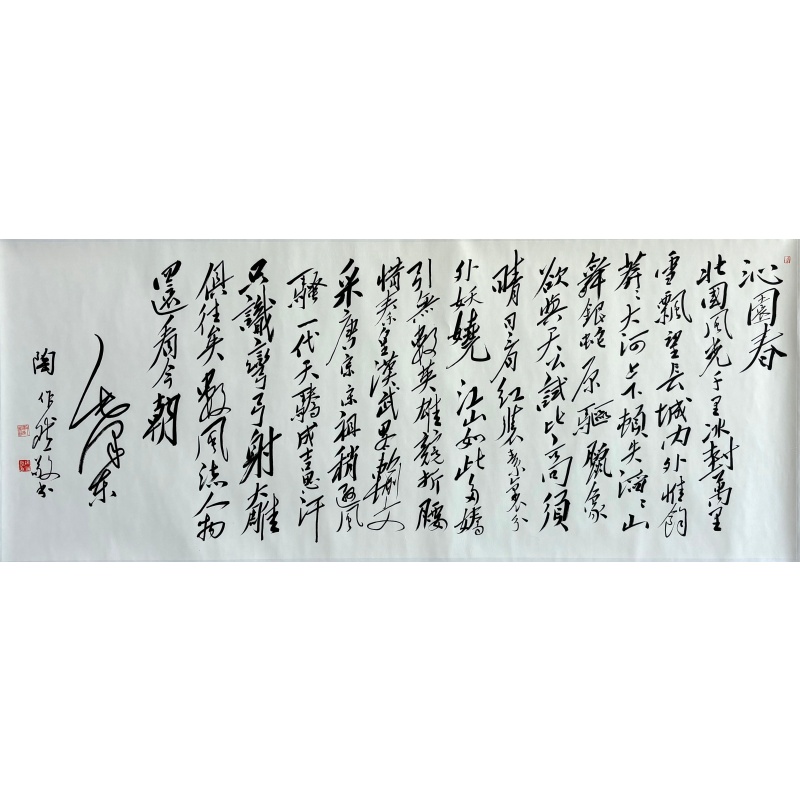 沁園春
北國風光千里冰封萬里
雪飄望長城內外惟餘
莽々大河上下頓失滔々山
舞銀蛇原驅臘象
欲與天公試比高須
晴日看紅裝素裹分
外妖嬈江山如此多嬌
引無數英雄競折腰
惜秦皇漢武略輸文
采唐宗宋祖稍遜風
騷一代天驕成吉思汗
只識彎弓射大雕
俱往矣數風流人物
還看今朝
毛澤東
陶作敬書